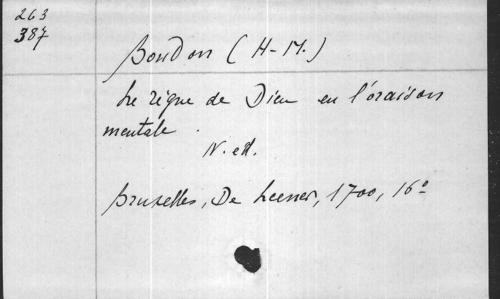 263
387
Boudon (H-M.)
Le règne de Dieu en l'oraison
mentale.
N. ed.
Bruxelles, De Leener, 1700, 16°